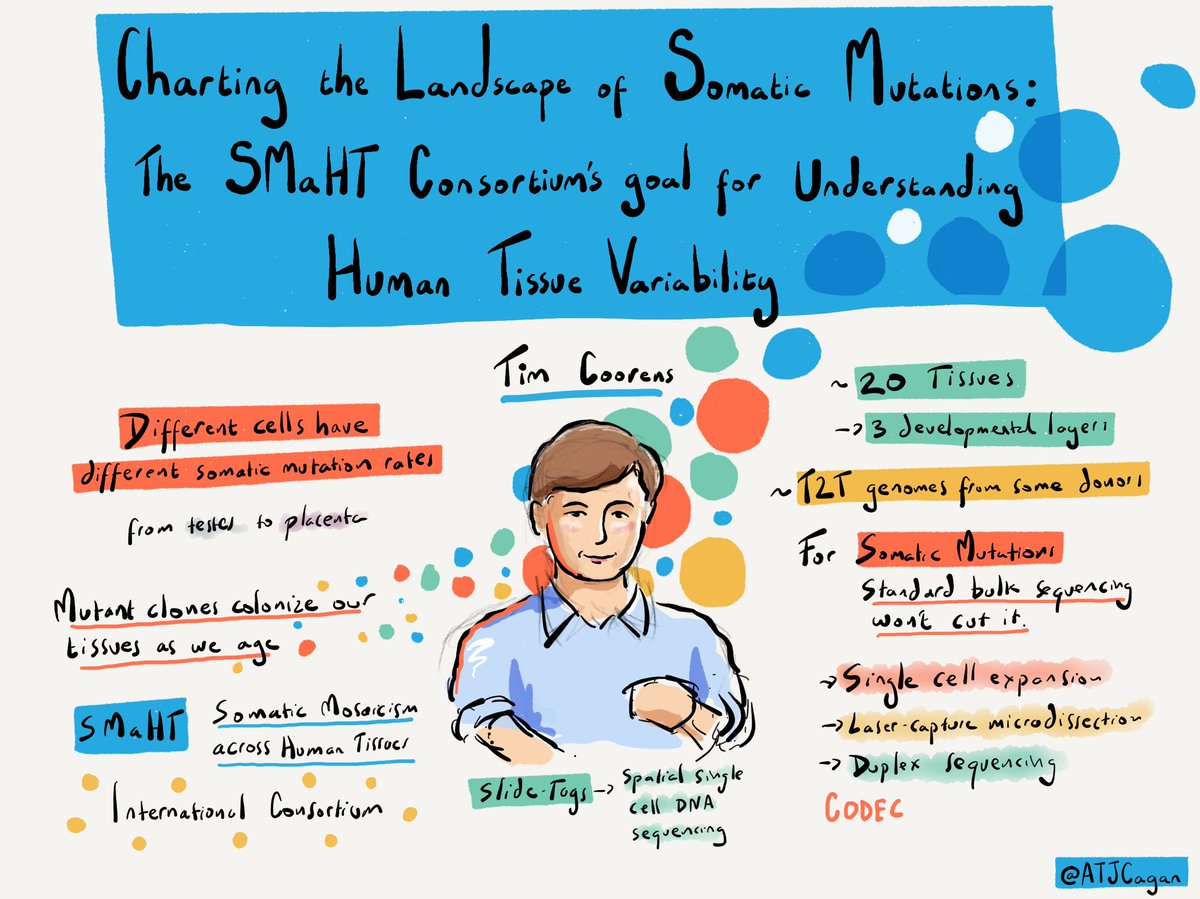 Charting the Landscape of Somatic Mutations:
The SMaHT Consortium's goal for Understanding
Human Tissue Variability
Tim Coorens
Different cells have
different somatic mutation rates
from testes to placenta
Mutant clones colonize our
tissues as we age
SMaHT
Somatic Mosaicism
across Human Tissues
International Consortium
Slide-Tags → Spatial single
cell DNA
sequencing
~ 20 Tissues
→ 3 developmental layers
~ T2T genomes from some donors
For Somatic Mutations
Standard bulk sequencing
won't cut it.
→ Single cell expansion
→ Laser-capture microdissection
→ Duplex sequencing
CODEC
@ATJCagan